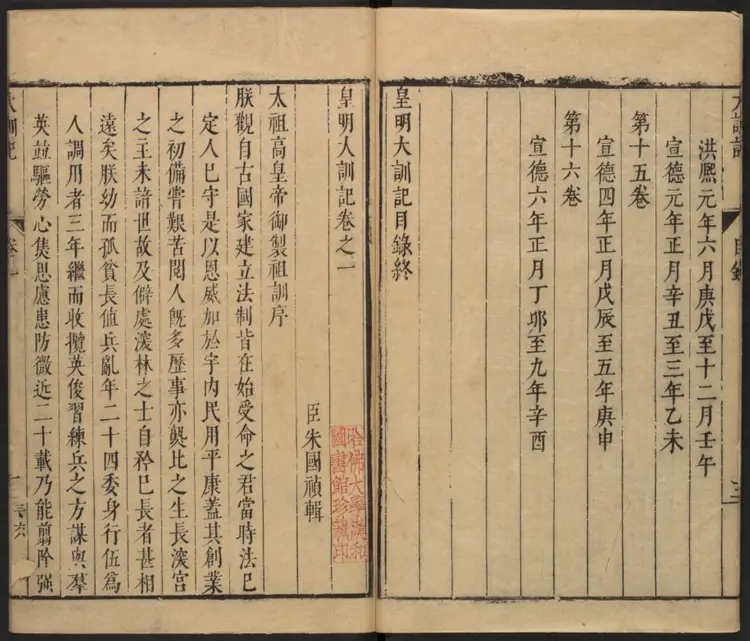 洪熙元年六月庚戌至十二月壬午
宣德元年正月辛丑至三年乙未
第十五卷
宣德四年正月戊辰至五年庚申
第十六卷
宣德六年正月丁卯至九年辛酉
皇明大訓記目錄終
皇明大訓記卷之一
臣朱國禎輯
太祖高皇帝御製祖訓序
朕觀自古國家建立法制皆在始受命之君當時法已
定人已守是以恩威加於宇内民用平康蓋其創業
之初備嘗艱苦閱人既多歷事亦熟比之生長深宮
之主未諳世故及僻處深林之士自矜已長者甚相
遠矣朕幼而孤貧長值兵亂年二十四委身行伍爲
人調用者三年繼而收攬英俊習練兵之方謀與羣
英並驅勞心焦思慮患防微近二十載乃能剪除强
大訓記
卷一
哈佛大學漢和
圖書館珍藏印